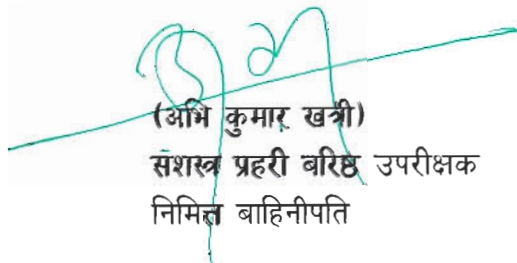 (अभि कुमार खत्री)
सशस्त्र प्रहरी बरिष्ठ उपरीक्षक
निमित्त बाहिनीपति